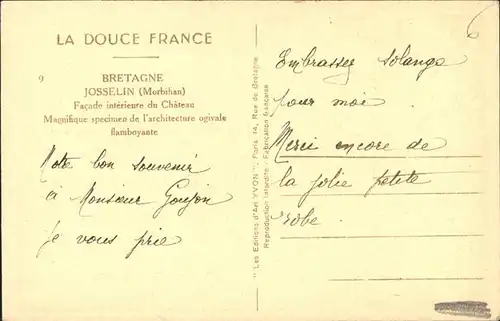 LA DOUCE FRANCE
9
BRETAGNE
JOSSELIN (Morbihan)
Façade intérieure du Château
Magnifique specimen de l'architecture ogivale
flamboyante
Notre bon souvenir
à Monsieur Goujon
je vous prie
"Les Editions d'Art YVON", Paris 14, Rue de Bretagne
Reproduction interdite - Fabrication française
6
Embrassez Solange
pour moi
Merci encore de
la jolie petite
robe